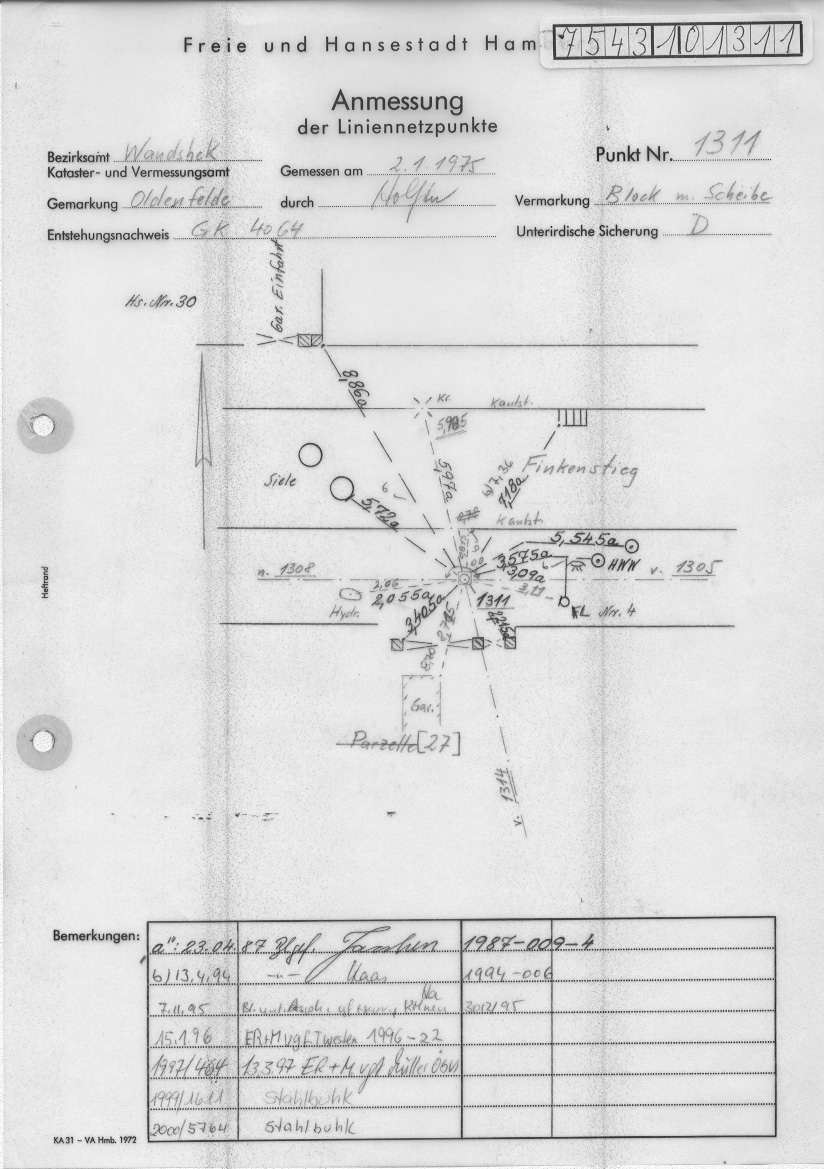 Freie und Hansestadt Ham
7543101311
Anmessung
der Liniennetzpunkte
Bezirksamt Wandsbek
Kataster- und Vermessungsamt
Gemessen am 2.1.1975
Punkt Nr. 1311
Gemarkung Oldenfelde
durch
Vermarkung Block m. Scheibe
Entstehungsnachweis GK 4064
Unterirdische Sicherung D
Gar. Einfahrt
Hs. Nr. 30
8,86a
Kr. Kantst.
5,97a
Siele
6
5,72a
b/7,36
7,18a
Finkenstieg
Kantst.
5,545a
3,575a
HWN
3,09a
n. 1308
v. 1305
2,06
2,055a
3,11
Hydr.
3,405a
1311
KL Nr. 4
Gar.
Parzelle [27]
v. 1314
Heftrand
Bemerkungen:
"a": 23.04.87 1987-009-4
b/13.4.94 -"- Maas 1994-006
7.11.95 3012/95
15.1.96 ER+M vgl. Twesten 1996-22
1997/464 13.3.97 ER+M vgl. Müller ÖbVI
1999/1611 Stahlbuhk
2000/5764 Stahlbuhk
KA 31 – VA Hmb. 1972